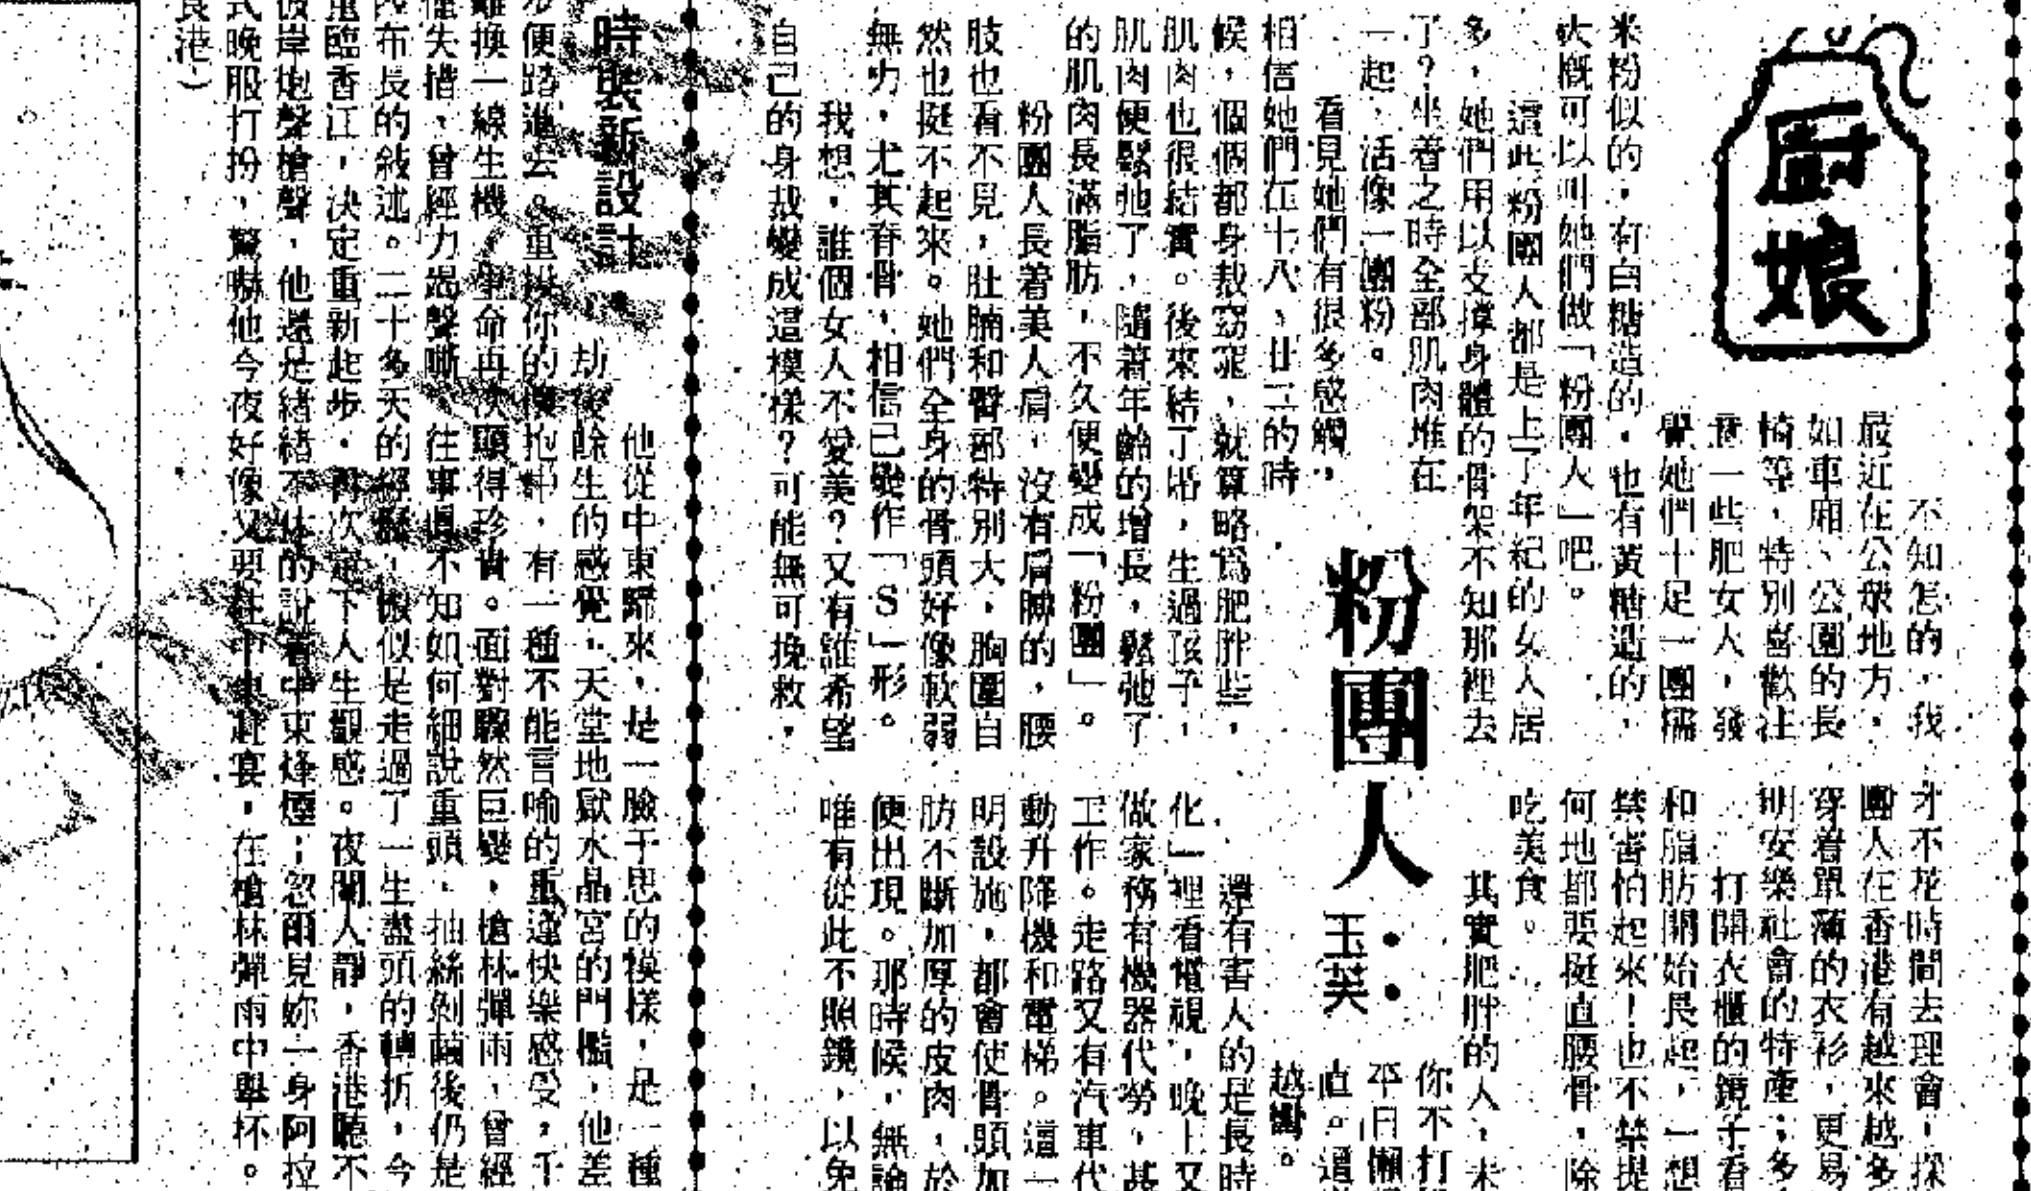 廚娘
粉團人：玉芙
不知怎的，我
最近在公衆地方，
如車廂、公園的長
椅等，特別喜歡注
意一些肥女人，發
覺她們十足一團糯
米粉似的，有白糖造的，也有黃糖造的，
大概可以叫她們做「粉團人」吧。
這些粉團人都是上了年紀的女人居
多，她們用以支撐身體的骨架不知那裡去
了？坐着之時全部肌肉堆在
一起，活像一團粉。
看見她們有很多感觸，
相信她們在十八、廿二的時
候，個個都身裁窈窕，就算略爲肥胖些，
肌肉也很結實。後來結了婚，生過孩子，
肌肉便鬆弛了，隨着年齡的增長，鬆弛了
的肌肉長滿脂肪，不久便變成「粉團」。
粉團人長着美人肩，沒有肩膊的，腰
肢也看不見，肚腩和臀部特別大，胸圍自
然也挺不起來。她們全身的骨頭好像軟弱
無力，尤其脊骨，相信已變作「S」形。
我想，誰個女人不愛美？又有誰希望
自己的身裁變成這模樣？可能無可挽救，
才不花時間去理會，採
團人在香港有越來越多
穿着單薄的衣衫，更易
明安樂社會的特產；多
打開衣櫃的鏡子看
和脂肪開始長起，一想
禁害怕起來！也不禁提
何地都要挺直腰骨，除
吃美食。
其實肥胖的人，未
你不打
平日懶
直。還
越彎。
還有害人的是長時
化」裡看電視，晚上又
做家務有機器代勞，甚
工作。走路又有汽車代
動升降機和電梯。這一
明設施，都會使骨頭加
肪不斷加厚的皮肉，於
便出現。那時候，無論
唯有從此不照鏡，以免
時裝新設計
他從中東歸來，是一臉于思的模樣，是一種
劫後餘生的感覺，天堂地獄水晶宮的門檻，他差
步便踏進去。重投你的懷抱中，有一種不能言喻的重逢快樂感受，千
難換一線生機，生命再次顯得珍貴。面對驟然巨變，槍林彈雨，曾經
失措，曾經力竭聲嘶，往事眞不知如何細說重頭，抽絲剝繭後仍是
布長的敍述。二十多天的經歷，恍似是走過了一生盡頭的轉折，今
重臨香江，決定重新起步，再次定下人生觀感。夜闌人靜，香港聽不
彼岸炮聲槍聲，他還是緒緒不休的說着中東烽煙；忽爾見妳一身阿拉
式晚服打扮，驚嚇他今夜好像又要往中東赴宴，在槍林彈雨中舉杯。
良港）